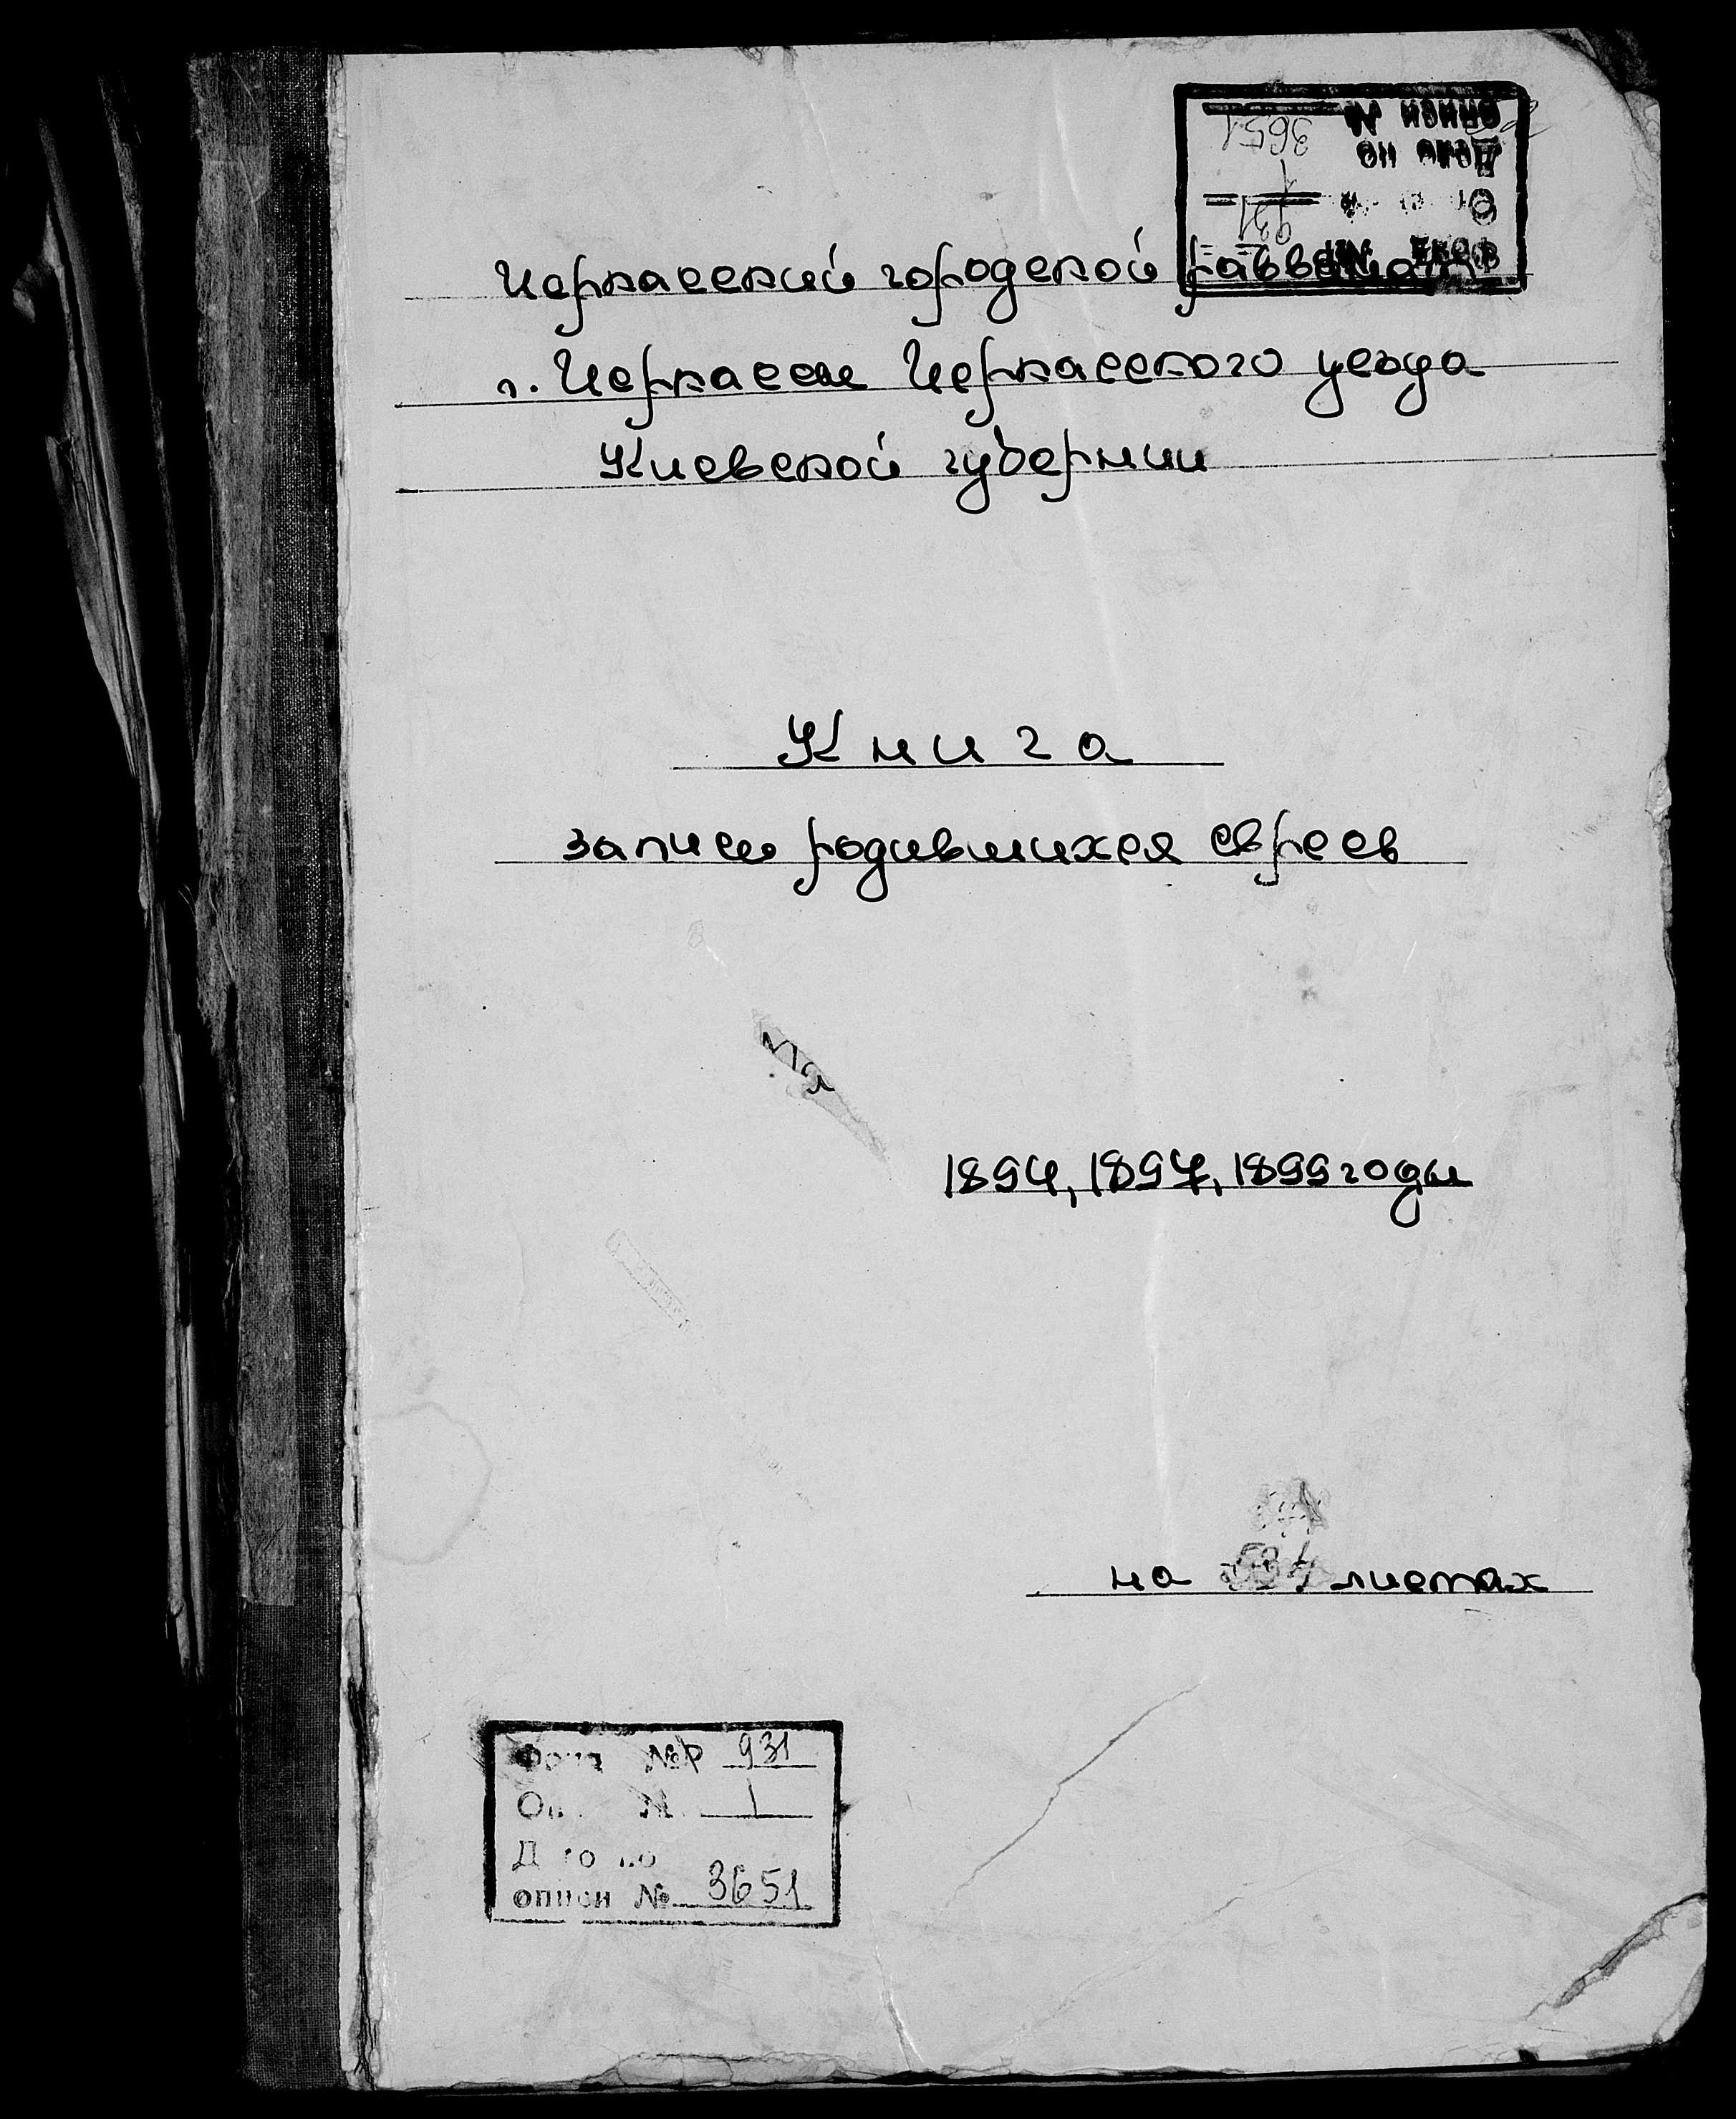 Черкасский городской раввинат
г. Черкассы Черкасского уезда
Киевской губернии
Книга
записи родившихся евреев
1894, 1897, 1899 годы
на листах
Фонд №Р 931
Оп. № 1
Дело по
описи № 3651